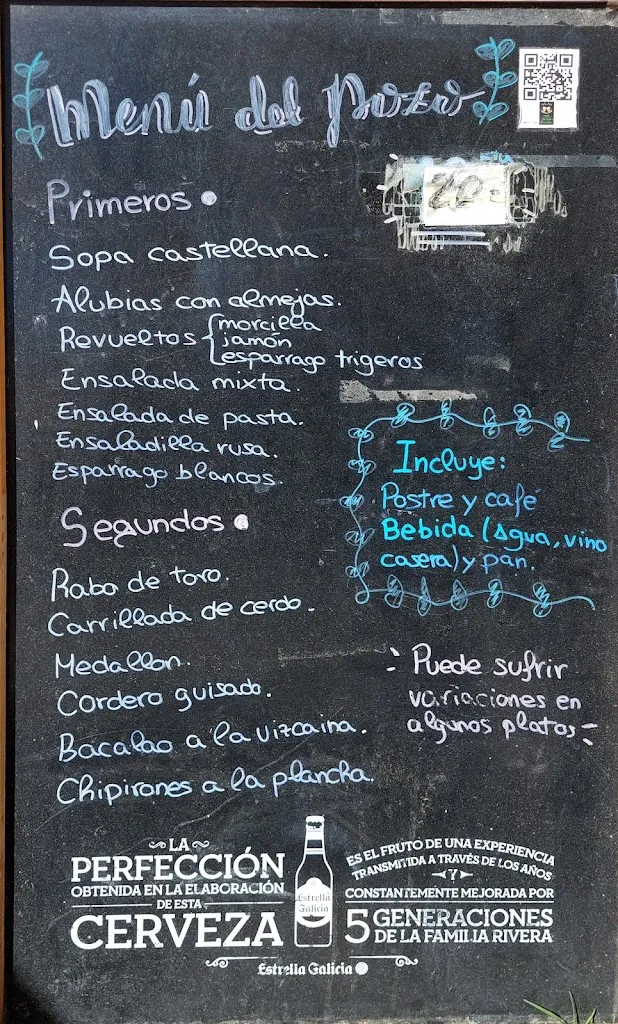 Menú del Pozo
20
Primeros
Sopa castellana.
Alubias con almejas.
Revueltos { morcilla
jamón
esparrago trigeros
Ensalada mixta.
Ensalada de pasta.
Ensaladilla rusa.
Esparrago blancos.
Incluye:
Postre y café
Bebida (Agua, vino
casera) y pan.
Segundos
Rabo de toro.
Carrillada de cerdo.
Medallon.
Cordero guisado.
Bacalao a la vizcaina.
Chipirones a la plancha.
Puede sufrir
variaciones en
algunos platos
LA
PERFECCIÓN
OBTENIDA EN LA ELABORACIÓN
DE ESTA
CERVEZA
Estrella
Galicia
ES EL FRUTO DE UNA EXPERIENCIA
TRANSMITIDA A TRAVÉS DE LOS AÑOS
Y
CONSTANTEMENTE MEJORADA POR
5 GENERACIONES
DE LA FAMILIA RIVERA
Estrella Galicia